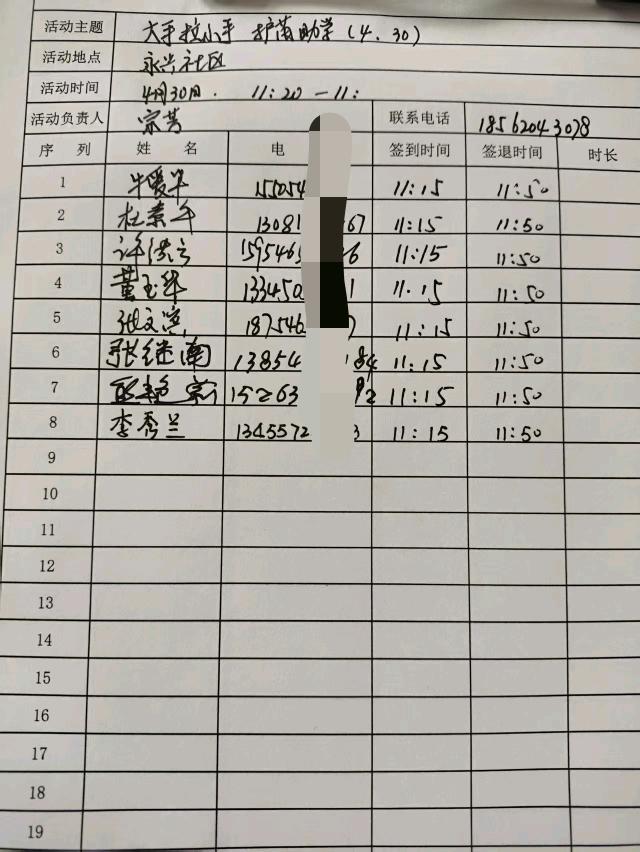 活动主题 大手拉小手 护苗助学(4.30)
活动地点 永兴社区
活动时间 4月30日. 11:20 — 11:
活动负责人 宗芳 联系电话 18562043078
序 列 姓 名 电 签到时间 签退时间 时长
1 牛爱华 155054 11:15 11:50
2 杜素 13081 67 11:15 11:50
3 许洪 1595465 6 11:15 11:50
4 黄玉华 133450 1 11.15 11:50
5 张文 187546 7 11:15 11:50
6 张继南 13854 84 11:15 11:50
7 15263 92 11:15 11:50
8 李秀兰 1345572 3 11:15 11:50
9
10
11
12
13
14
15
16
17
18
19